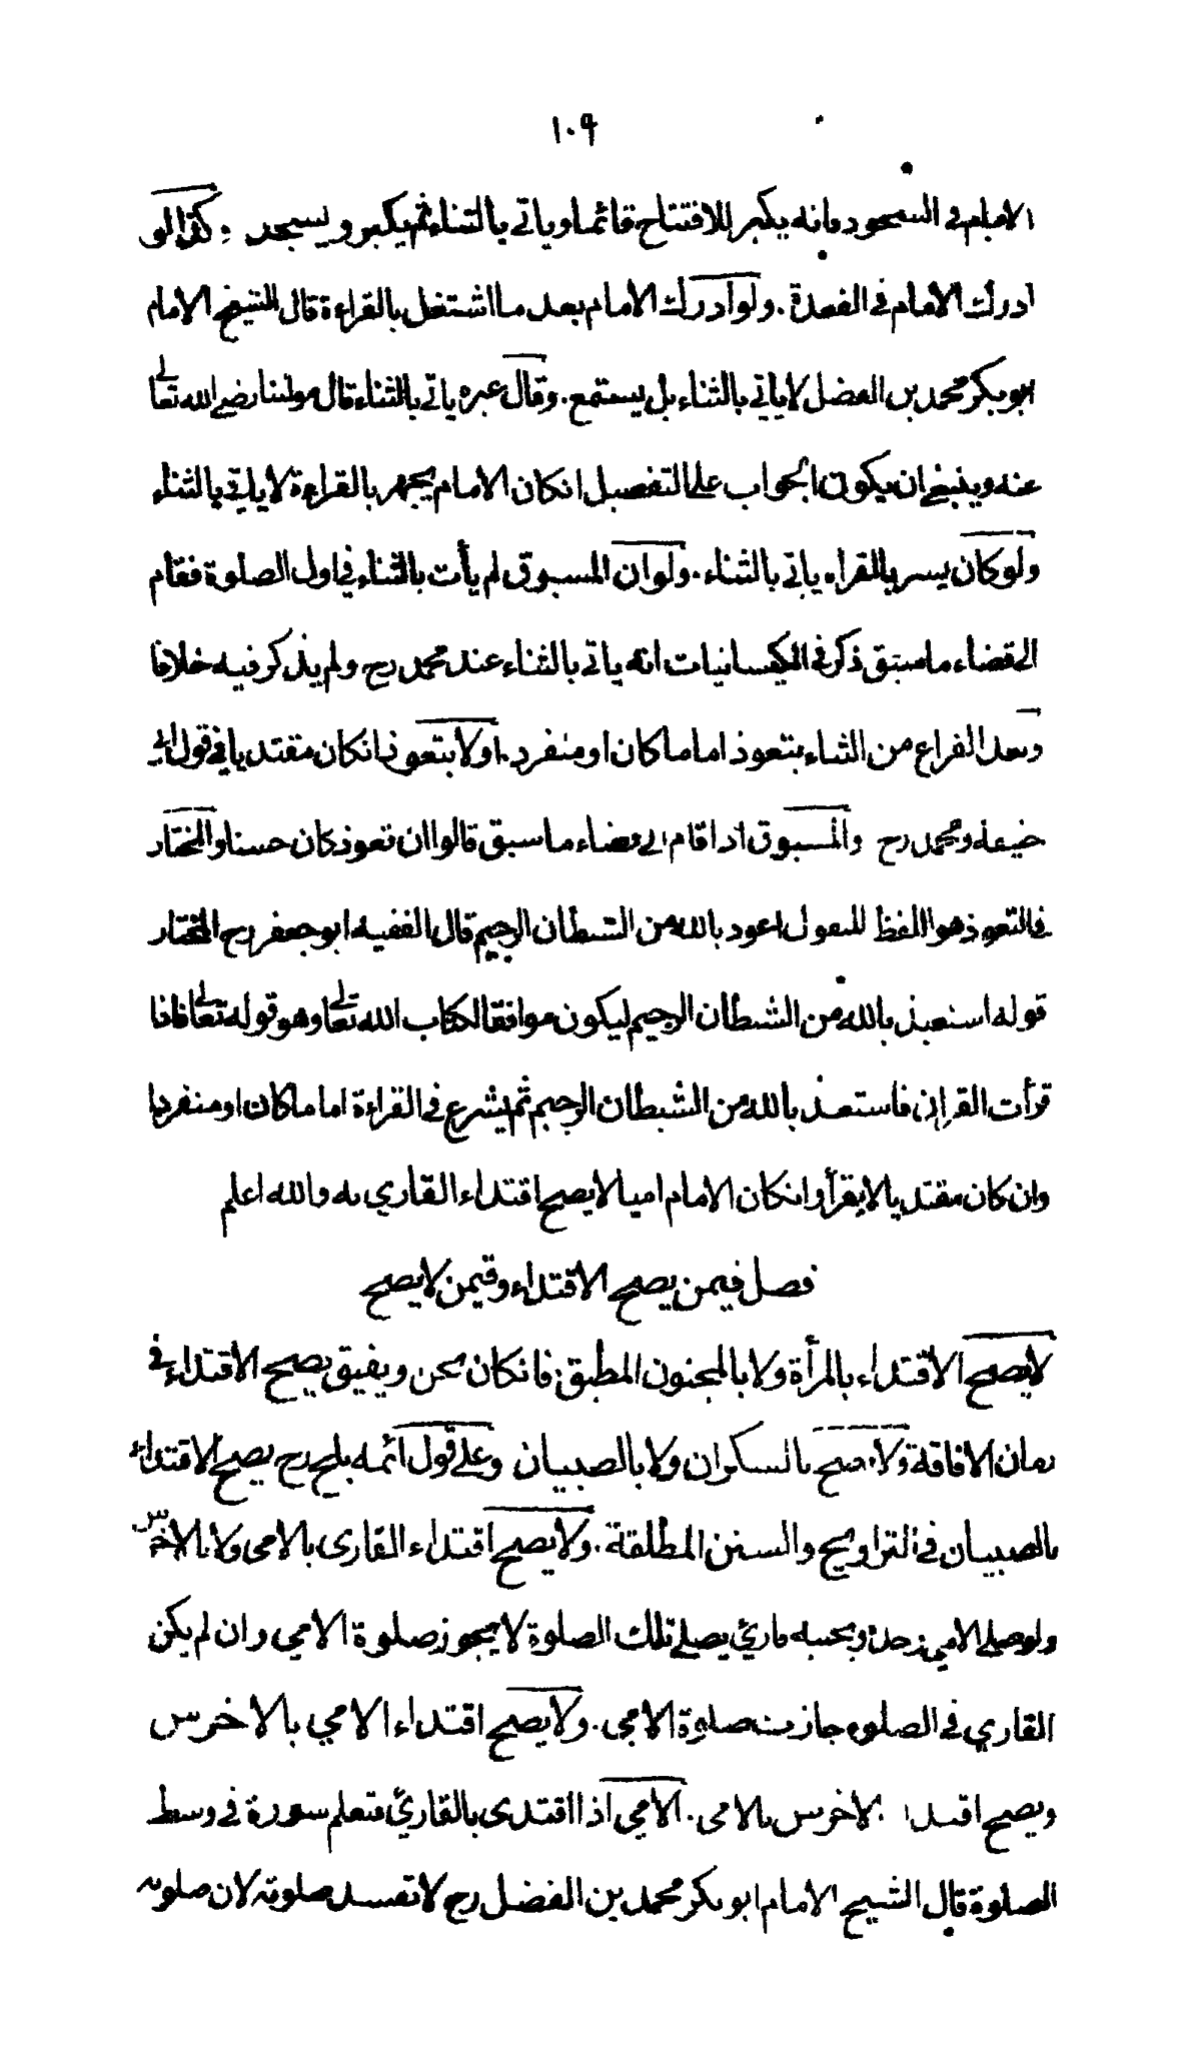 ١٠٩
الامام في السجود فانه يكبر للافتتاح قائما وياتي بالثناء ثم يكبر ويسجد وكذا لو
ادرك الامام في القعدة . ولو ادرك الامام بعد ما اشتغل بالقراءة قال الشيخ الامام
ابو بكر محمد بن الفضل لا ياتي بالثناء بل يستمع . وقال غيره ياتي بالثناء قال مولينا رضي الله تعالى
عنه وينبغي ان يكون الجواب على التفصيل انكان الامام يجهر بالقراءة لا ياتي بالثناء
ولو كان يسر بالقراه ياتي بالثناء . ولو ان المسبوق لم يأت بالثناء في اول الصلوة فقام
الى قضاء ما سبق ذكر في الكيسانيات انه ياتي بالثناء عند محمد رح ولم يذكر فيه خلافا
وبعد الفراغ من الثناء يتعوذ اماما كان او منفرد . او لا يتعوذ انكان مقتديا في قول ابي
حنيفة ومحمد رح والمسبوق اذا قام الى قضاء ما سبق قالوا ان تعوذ كان حسنا والمختار
في التعوذ هو اللفظ المنقول اعوذ بالله من الشيطان الرجيم قال الفقيه ابو جعفر رح المختار
قوله استعيذ بالله من الشيطان الرجيم ليكون موافقا لكتاب الله تعالى وهو قوله تعالى فاذا
قرأت القران فاستعذ بالله من الشيطان الرجيم ثم يشرع في القراءة اماما كان او منفردا
وان كان مقتديا لا يقرأ وانكان الامام اميا لا يصح اقتداء القاري به والله اعلم
فصل فيمن يصح الاقتداء وفيمن لا يصح
لا يصح الاقتداء بالمرأة ولا بالمجنون المطبق فانكان يجن ويفيق يصح الاقتداء في
زمان الافاقة ولا يصح بالسكران ولا بالصبيان وعلى قول ائمه بلخ رح يصح الاقتداء
بالصبيان في التراويح والسنن المطلقة . ولا يصح اقتداء القارى بالامي ولا بالاخرس
ولو صلى الامي وحده وبجنبه قارئ يصلي تلك الصلوة لا يجوز صلوة الامي وان لم يكن
القاري في الصلوه جازت صلوة الامي . ولا يصح اقتداء الامي بالاخرس
ويصح اقتداء الاخرس بالامي . الامي اذا اقتدى بالقارئ فتعلم سورة في وسط
الصلوة قال الشيخ الامام ابو بكر محمد بن الفضل رح لا تفسد صلوته لان صلوته